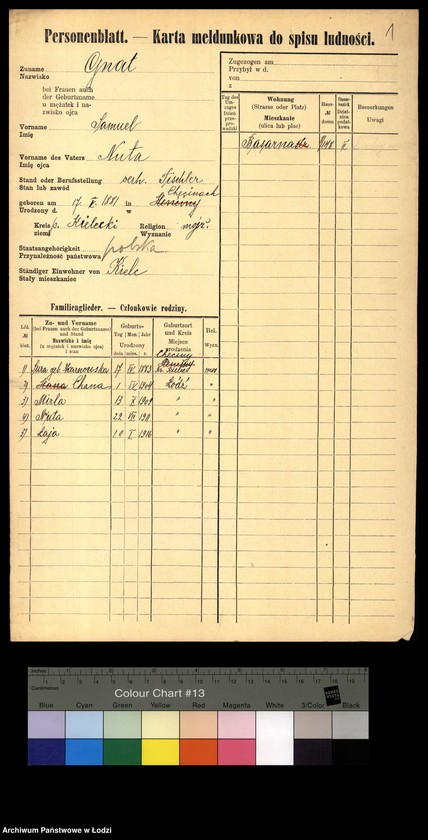 1
Personenblatt. — Karta meldunkowa do spisu ludności.
Zuname Gnat
Nazwisko
bei Frauen auch
der Geburtsname
u mężatek i na-
zwisko ojca
Vorname Samuel
Imię
Vorname des Vaters Nuta
Imię ojca
Stand oder Berufsstellung verh. Tischler
Stan lub zawód
Chęcinach
geboren am 17. X. 1881 in
Urodzony d. w
Kreis p. Kielecki Religion mojż.
ziemi Wyznanie
Staatsangehörigkeit polska
Przynależność państwowa
Ständiger Einwohner von Kielc
Stały mieszkaniec
Zugezogen am
Przybył w d.
von
z
Tag des Um-
zuges
Dzień
prze-
prowadzki
Wohnung
(Strasse oder Platz)
Mieszkanie
(ulica lub plac)
Haus-
№
domu
Steuer-
bezirk
Dzielni-
ca podat-
kowa
Bemerkungen
Uwagi
Familienglieder. — Członkowie rodziny.
Lfd.
№
bież.
Zu- und Vorname
(bei Frauen auch der Geburtsname)
und Stand
Nazwisko i imię
(u mężatek i nazwisko ojca)
i stan
Geburts-
Tag | Mon. | Jahr
Urodzony
dnia | mies. | r.
Geburtsort
und Kreis
Miejsce
urodzenia
Rel.
Wyzn.
Chęciny
1) geb. 17 IV 1883
2) Chana 1 IV 1904 Łódź "
3) Mirla 13 X 1909 " "
4) Nuta 22 VII 1911 " "
5) Łaja 10 I 1916 " "
Inches
Centimetres
Colour Chart #13
Blue Cyan Green Yellow Red Magenta White 3/Color Black
Archiwum Państwowe w Łodzi